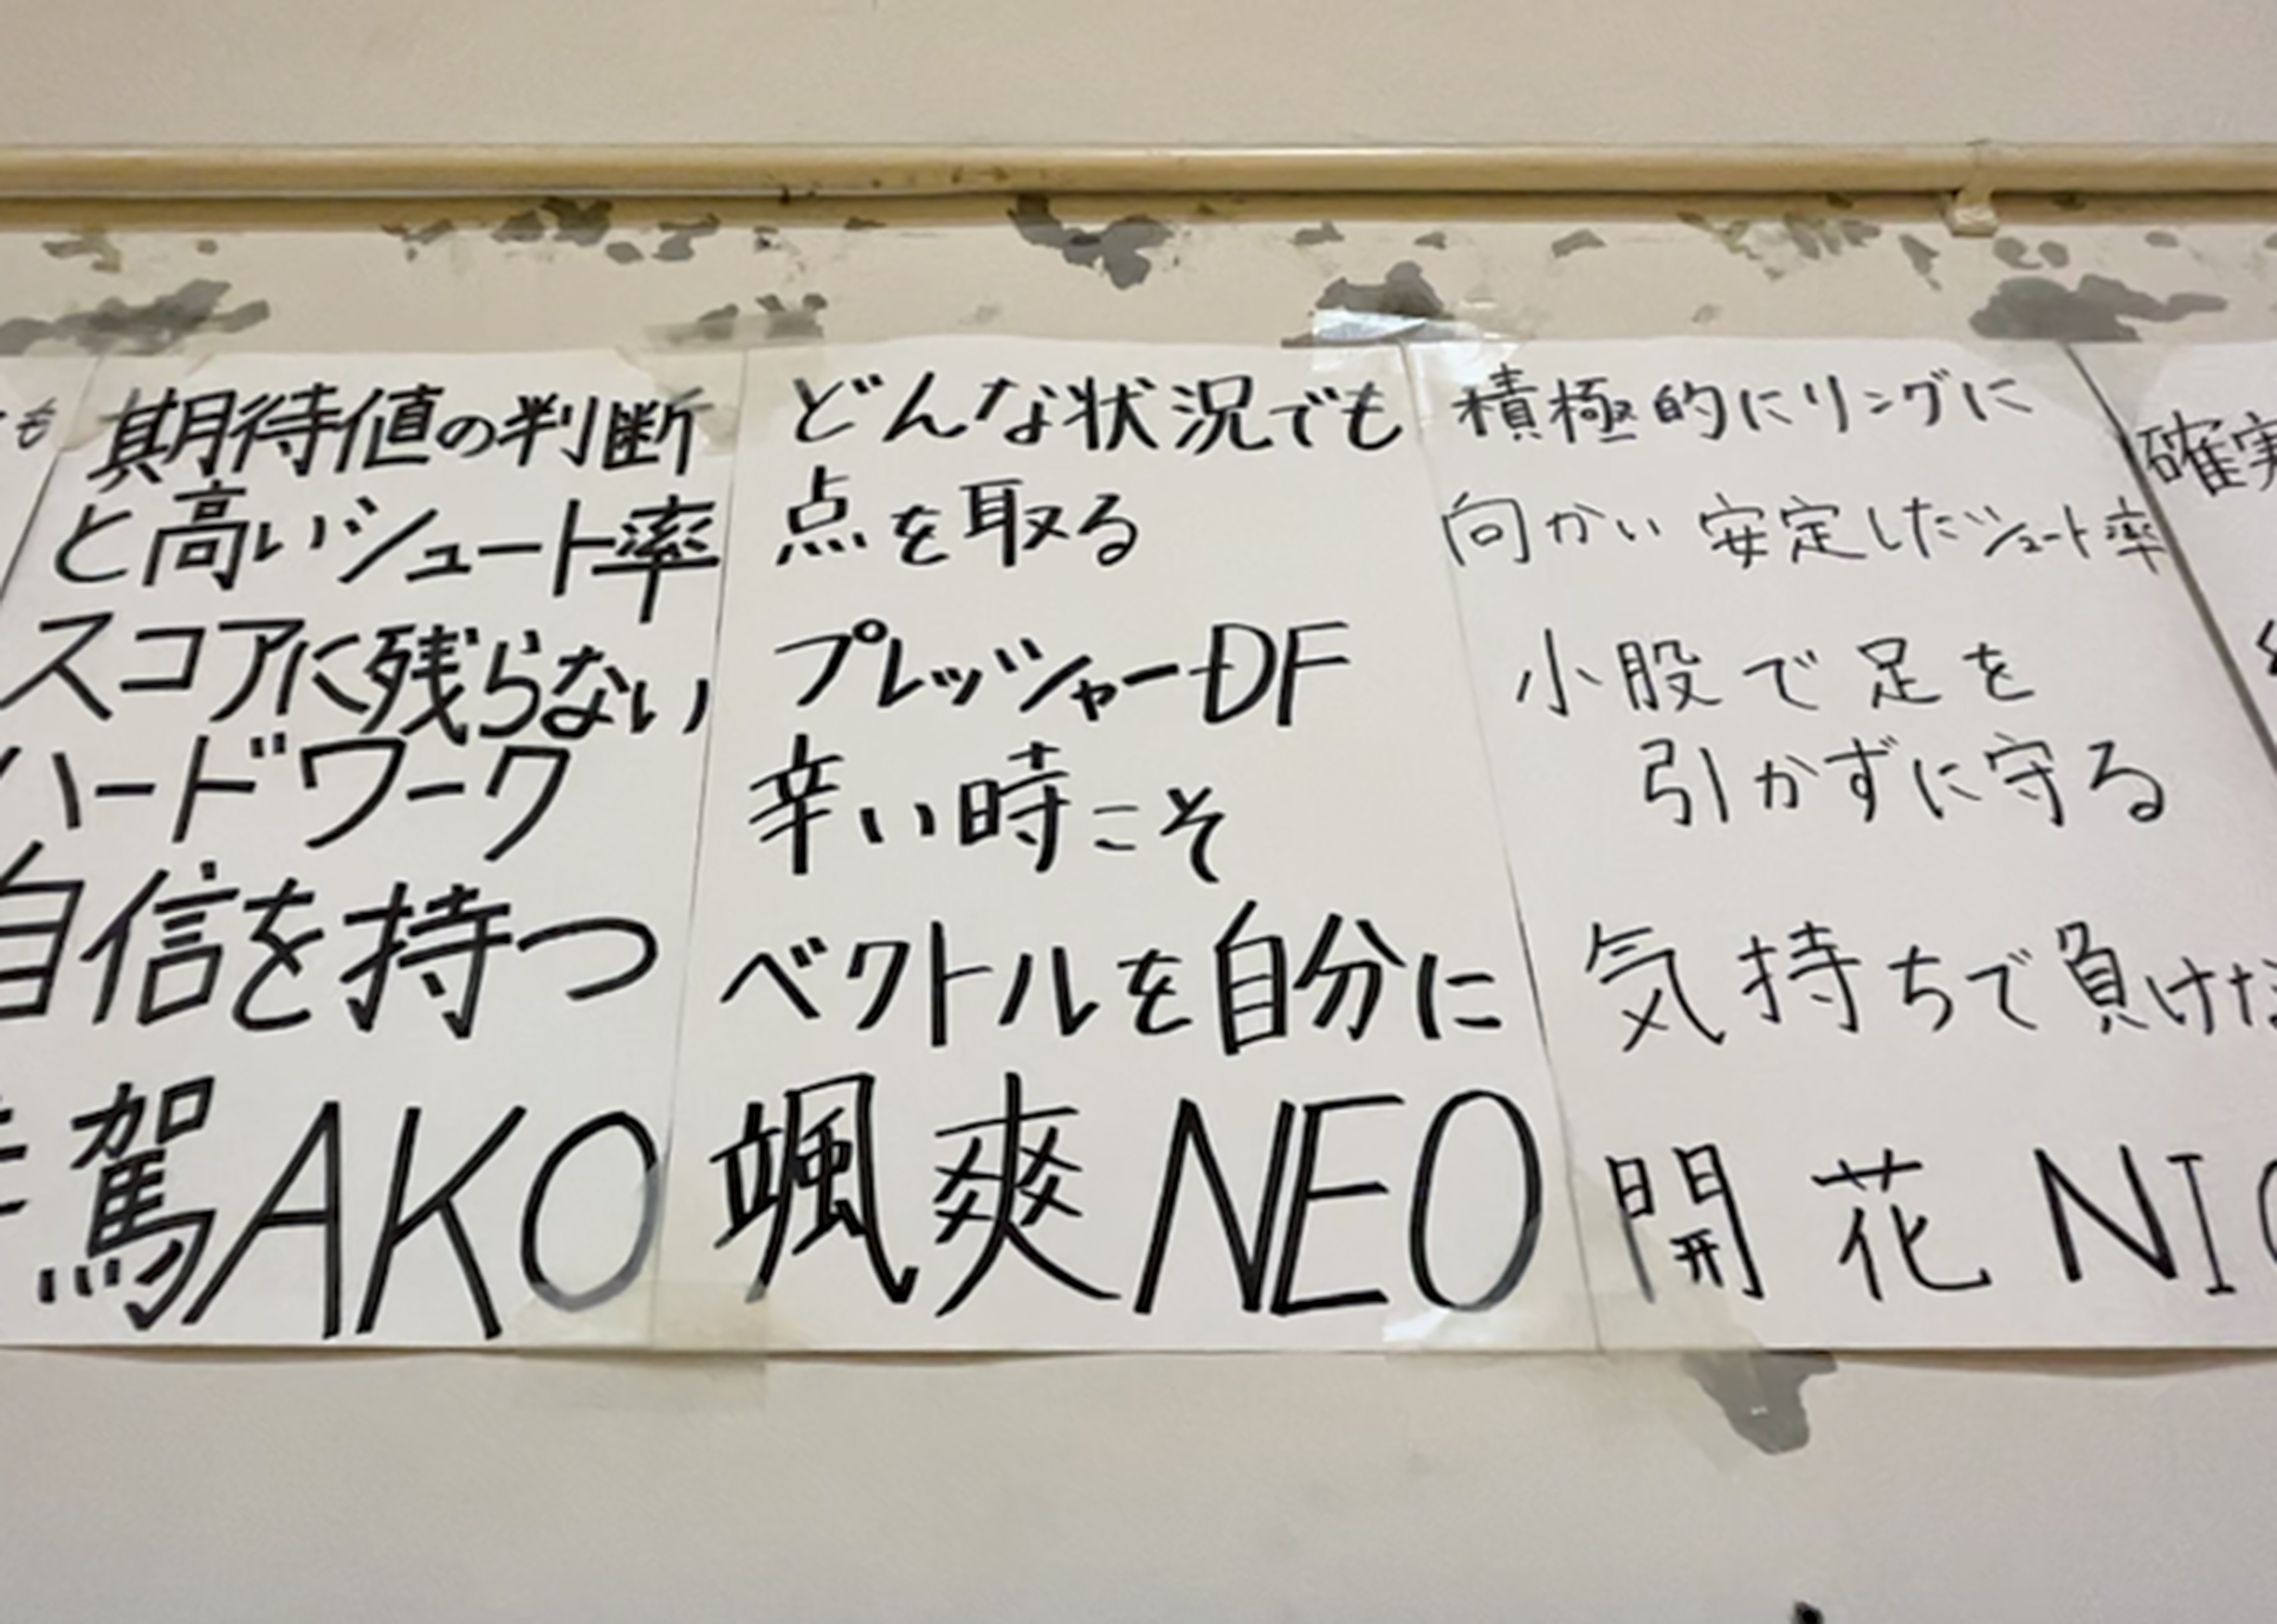 も
期待値の判断
と高いシュート率
スコアに残らない
ハードワーク
自信を持つ
駕AKO
どんな状況でも
点を取る
プレッシャーDF
辛い時こそ
ベクトルを自分に
颯爽NEO
積極的にリングに
向かい 安定したシュート率
小股で足を
引かずに守る
気持ちで負けな
開花 NIO
確実